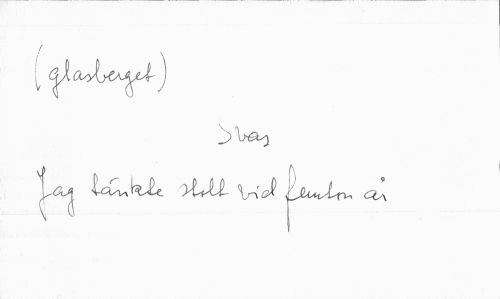 (glasberget)
Ivas
Jag tänkte stolt vid femton år